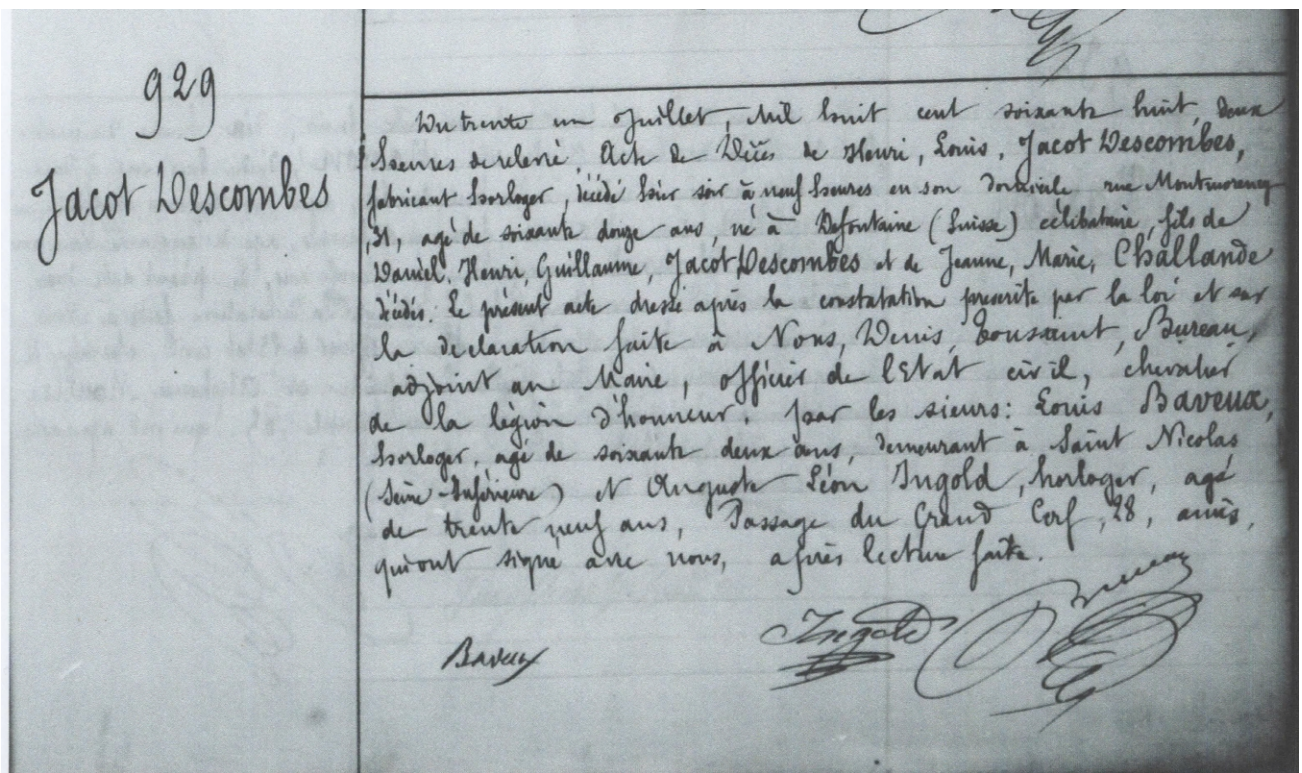 929
Jacot Descombes
Du trente un Juillet, Mil huit cent soixante huit, deux
heures de relevé Acte de Décès de Henri, Louis, Jacot Descombes,
fabricant horloger, décédé hier soir à neuf heures en son domicile rue Montmorency
, 31, agé de soixante douze ans, né à Defontaine (Suisse) célibataire, fils de
Daniel, Henri, Guillaume, Jacot Descombes et de Jeanne, Marie, Challande
décédés. Le présent acte dressé après la constatation prescrite par la loi et sur
la déclaration faite à Nous, Denis, Toussaint, Bureau,
adjoint au Maire, officier de l'Etat civil, chevalier
de la légion d'honneur. par les sieurs: Louis Baveux,
horloger, agé de soixante deux ans, demeurant à Saint Nicolas
(Seine-Inférieure) et Auguste Léon Ingold, horloger, agé
de trente neuf ans, Passage du Grand Cerf, 28, amis,
qui ont signé avec nous, après lecture faite.
Baveux
Ingold
Bureau